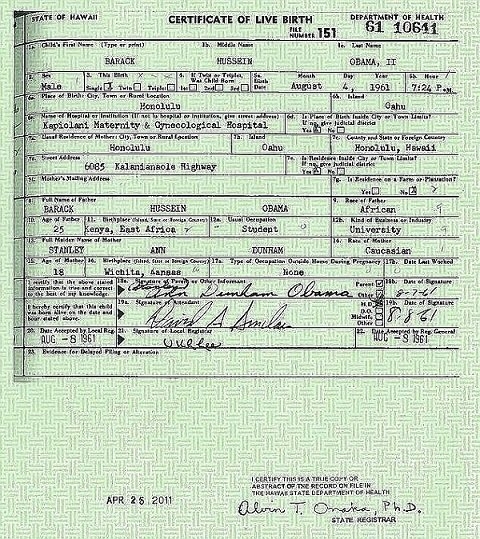 STATE OF HAWAII CERTIFICATE OF LIVE BIRTH DEPARTMENT OF HEALTH
FILE NUMBER 151 61 10641
1a. Child's First Name (Type or print) 1b. Middle Name 1c. Last Name
BARACK HUSSEIN OBAMA, II
2. Sex 3. This Birth 4. If Twin or Triplet, Was Child Born 5a. Birth Date Month Day Year 5b. Hour
Male Single Twin Triplet 1st 2nd 3rd August 4, 1961 7:24 P.M.
6a. Place of Birth: City, Town or Rural Location 6b. Island
Honolulu Oahu
6c. Name of Hospital or Institution (If not in hospital or institution, give street address) 6d. Is Place of Birth Inside City or Town Limits? If no, give judicial district
Kapiolani Maternity & Gynecological Hospital Yes No
7a. Usual Residence of Mother: City, Town or Rural Location 7b. Island 7c. County and State or Foreign Country
Honolulu Oahu Honolulu, Hawaii
7d. Street Address 7e. Is Residence Inside City or Town Limits? If no, give judicial district
6085 Kalanianaole Highway Yes No
7f. Mother's Mailing Address 7g. Is Residence on a Farm or Plantation?
Yes No
8. Full Name of Father 9. Race of Father
BARACK HUSSEIN OBAMA African
10. Age of Father 11. Birthplace (Island, State or Foreign Country) 12a. Usual Occupation 12b. Kind of Business or Industry
25 Kenya, East Africa Student University
13. Full Maiden Name of Mother 14. Race of Mother
STANLEY ANN DUNHAM Caucasian
15. Age of Mother 16. Birthplace (Island, State or Foreign Country) 17a. Type of Occupation Outside Home During Pregnancy 17b. Date Last Worked
18 Wichita, Kansas None
I certify that the above stated information is true and correct to the best of my knowledge. 18a. Signature of Parent or Other Informant Parent Other 18b. Date of Signature
Dunham Obama 8-7-61
I hereby certify that this child was born alive on the date and hour stated above. 19a. Signature of Attendant M.D. D.O. Midwife Other 19b. Date of Signature
8-8-61
20. Date Accepted by Local Reg. 21. Signature of Local Registrar 22. Date Accepted by Reg. General
AUG -8 1961 AUG -8 1961
23. Evidence for Delayed Filing or Alteration
I CERTIFY THIS IS A TRUE COPY OR
ABSTRACT OF THE RECORD ON FILE IN
THE HAWAII STATE DEPARTMENT OF HEALTH
APR 25 2011
Alvin T. Onaka, Ph.D.
STATE REGISTRAR